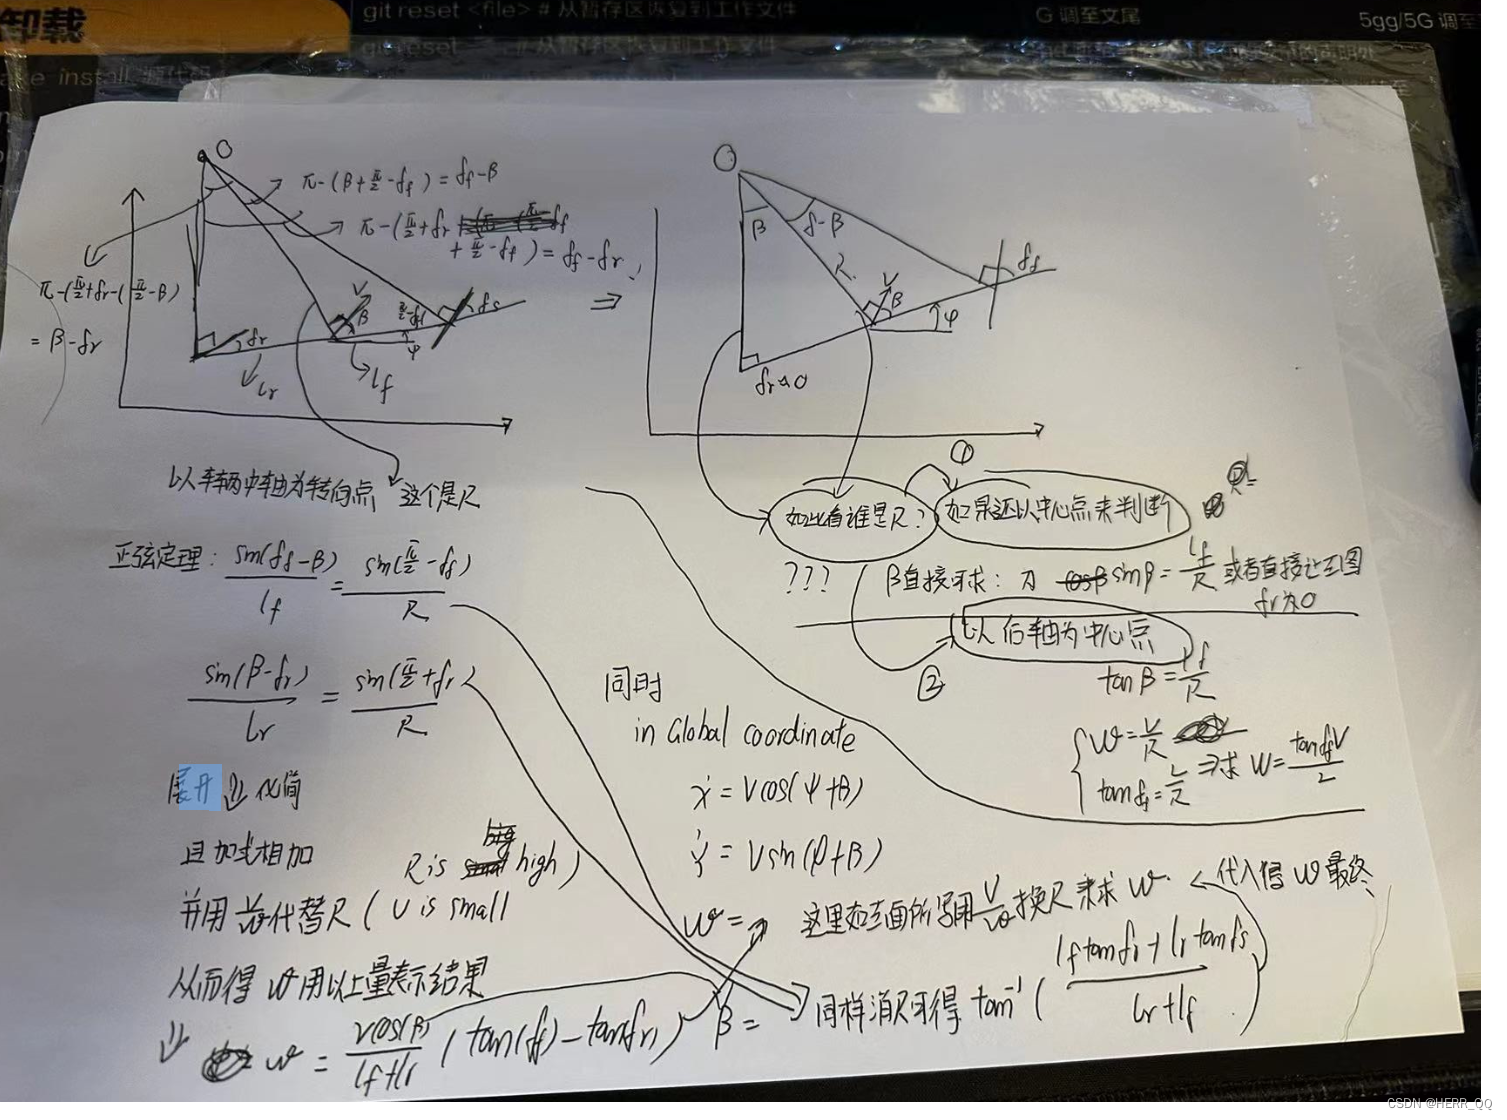 卸载
git reset <file> # 从暂存区恢复到工作文件
G 调至文尾
5gg/5G 调至
git reset # 从暂存区恢复到工作文件
install
O
π-(β+π/2-δf)=δf-β
π-(π/2+δr
+π/2-δf)=δf-δr
π-(π/2+δr-(π/2-β)
=β-δr
V
β
δr
lr
lf
φ
O
β
δ-β
R
V
β
δf
φ
δr≈0
⇒
以车辆中轴为转向点 这个是R
正弦定理: sin(δf-β)/lf = sin(π/2-δf)/R
sin(β-δr)/lr = sin(π/2+δr)/R
展开 ⇓ 化简
且加式相加
R is high)
并用 代替R (V is small
从而得 w 用以上量表示结果
⇓ w = Vcos(β)/(lf+lr) (tan(δf)-tan(δr))
①
如此看谁是R?
如果还以中心点来判断
???
β直接可求: sinβ= /R 或者直接让左图
δr为0
②
以后轴为中心点
tanβ= /R
w=V/R
tanδf=L/R ⇒求 w=tanδfV/L
同时
in Global coordinate
ẋ = Vcos(ψ+β)
Ẏ = Vsin(φ+β)
w= 这里如左面所写用V/w换R来求 w 代入得 w 最终
β= 同样消R可得 tan⁻¹( (lf tanδr + lr tanδf)/(lr+lf) )
CSDN @HERR_QQ